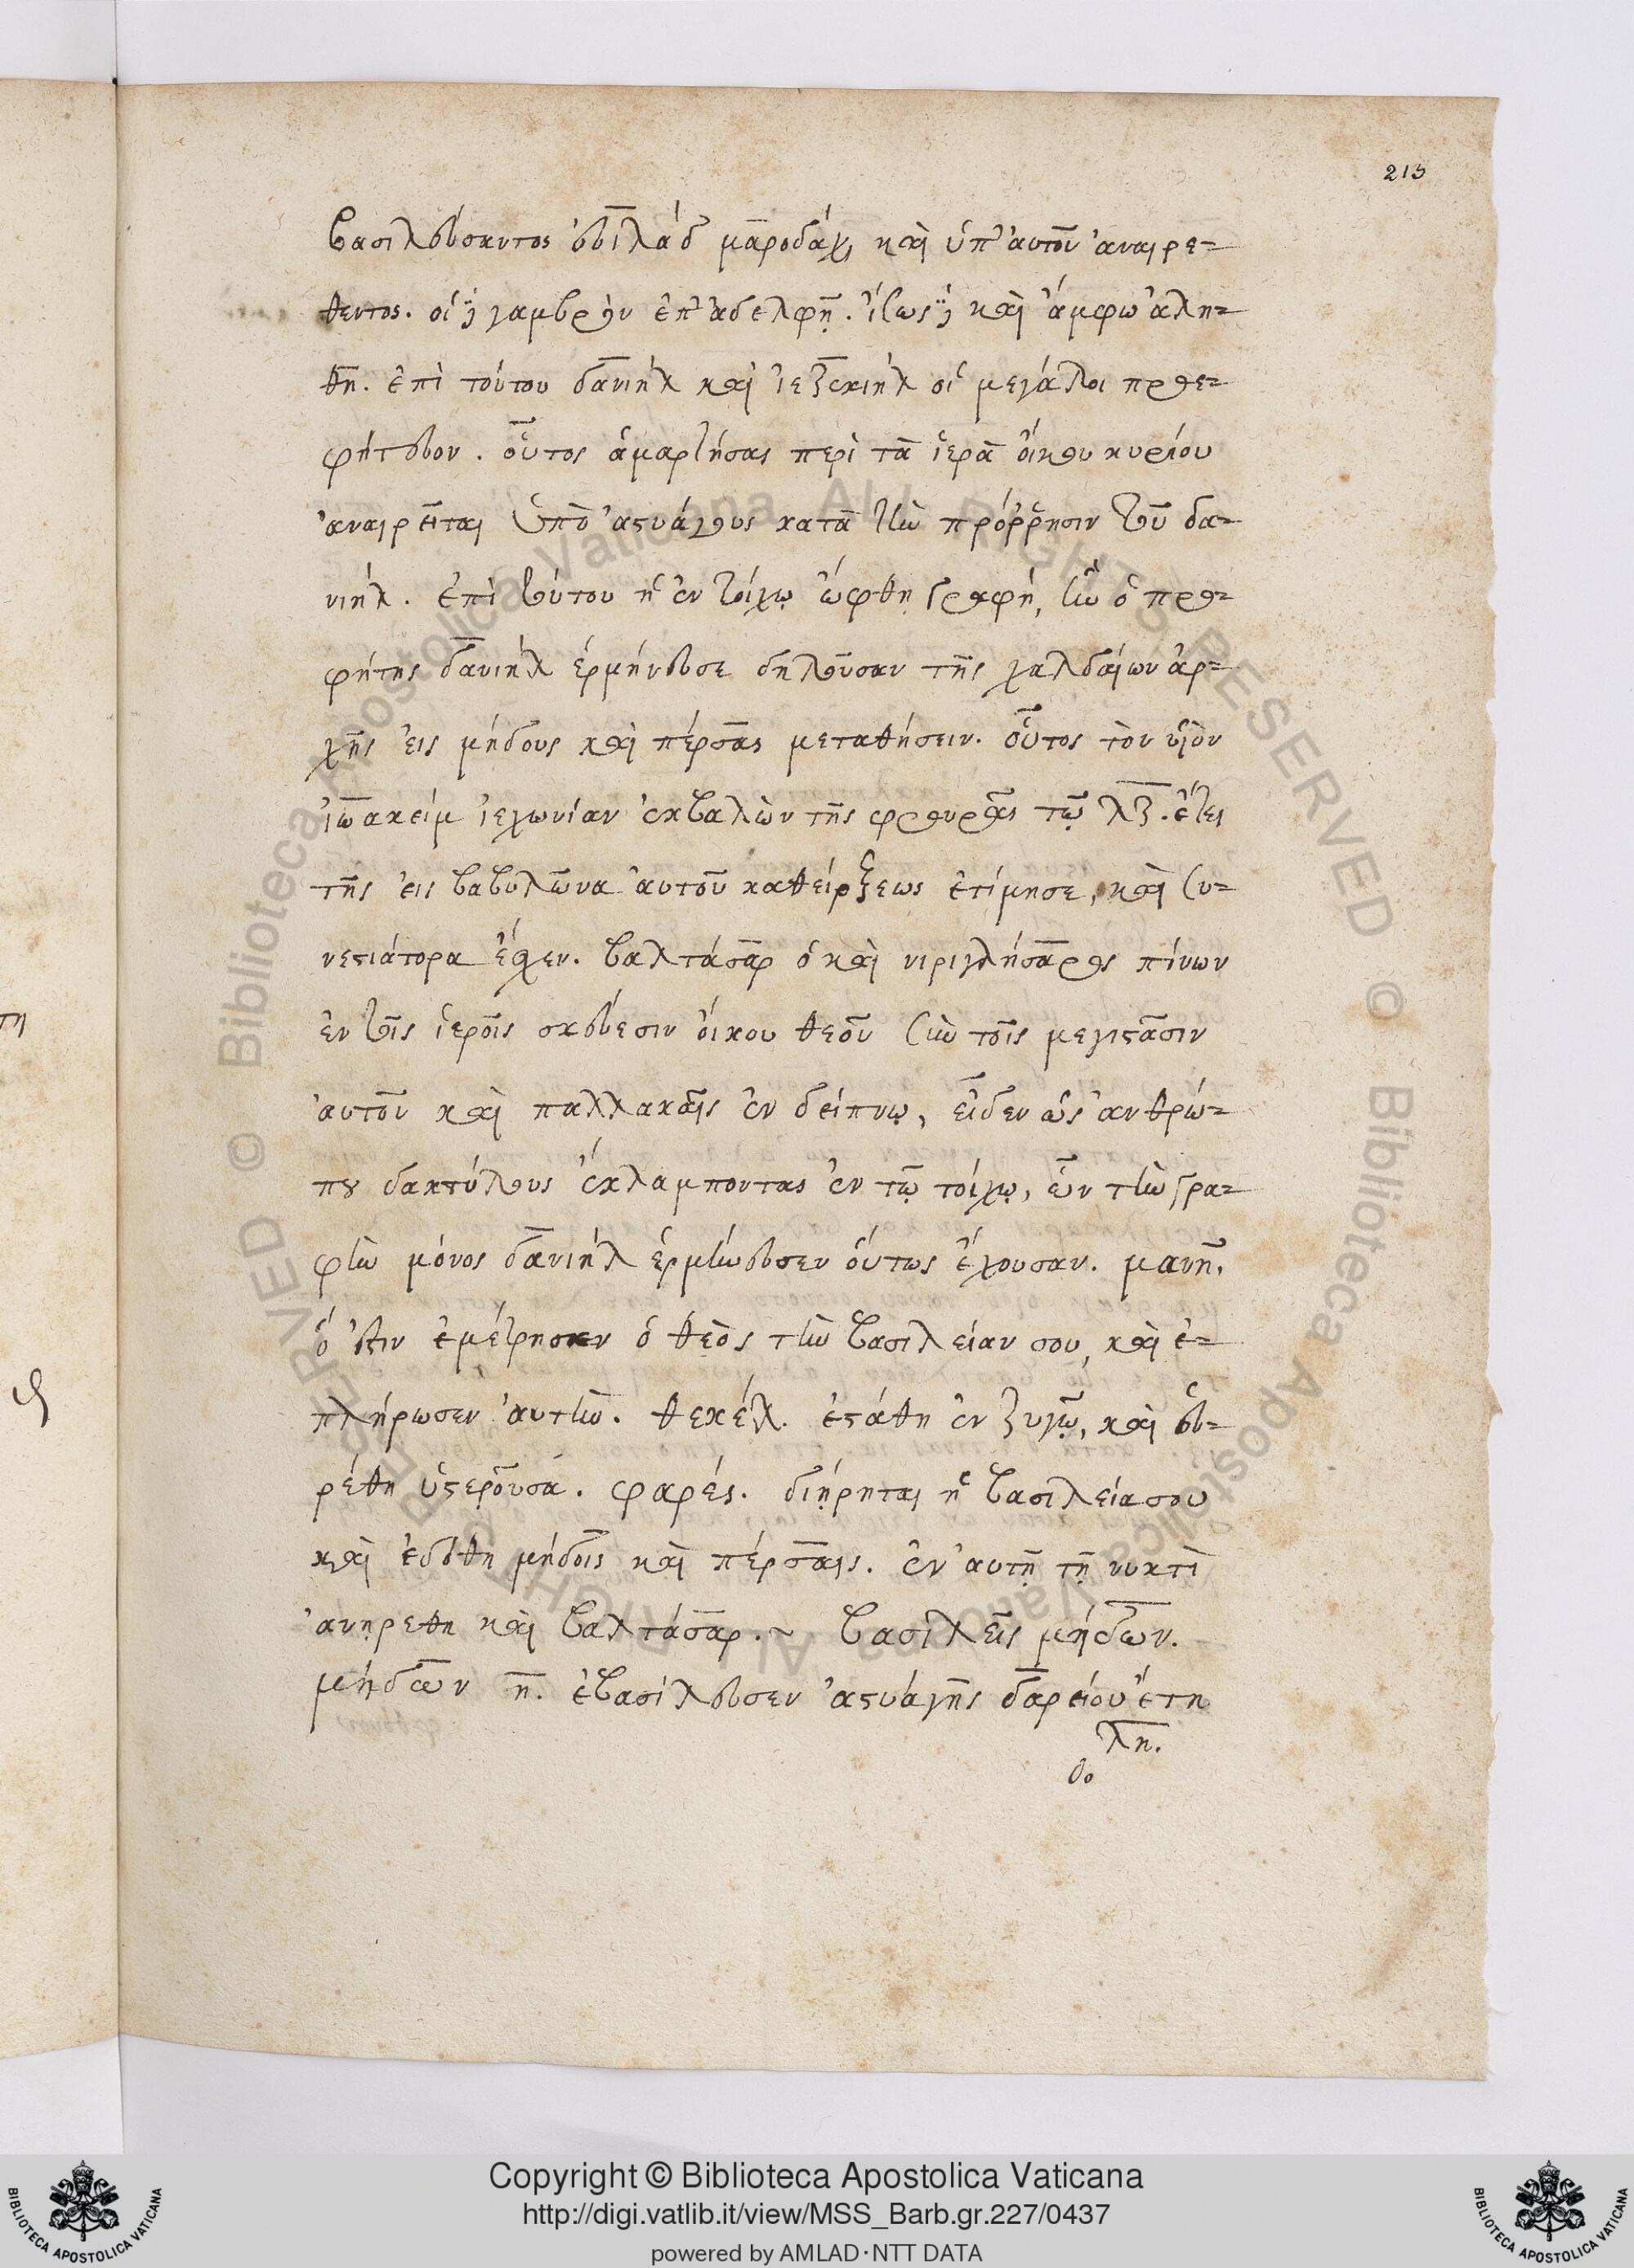 213
βασιλεύσαντος εὐϊλὰδ μαροδάχ, καὶ ὑπ' αὐτοῦ ἀναιρε-
θεντος. οἱ δὲ γαμβρὸν ἐπ' ἀδελφῇ. ἴσως δὲ καὶ ἄμφω ἀλη-
θῆ. ἐπὶ τούτου δανιὴλ καὶ ἰεζεκιὴλ οἱ μεγάλοι προε-
φήτευον. οὗτος ἁμαρτήσας περὶ τὰ ἱερὰ οἴκου κυρίου
ἀναιρεῖται ὑπὸ ἀστυάγους κατὰ τὴν πρόῤῥησιν τοῦ δα-
νιήλ. ἐπὶ τούτου ἡ ἐν τοίχῳ ὤφθη γραφή, ἣν ὁ προ-
φήτης δανιὴλ ἑρμήνευσε δηλοῦσαν τῆς χαλδαίων ἀρ-
χῆς εἰς μήδους καὶ πέρσας μεταθήσειν. οὗτος τὸν υἱὸν
ἰωακεὶμ ἰεχωνίαν ἐκβαλὼν τῆς φρουρᾶς τῷ λζ. ἔτει
τῆς εἰς βαβυλῶνα αὐτοῦ καθείρξεως ἐτίμησε, καὶ συ-
νεστιάτορα ἔσχεν. βαλτάσαρ ὁ καὶ νιριγλήσαρος πίνων
ἐν τοῖς ἱεροῖς σκεύεσιν οἴκου θεοῦ σὺν τοῖς μεγιστᾶσιν
αὐτοῦ καὶ παλλακαῖς ἐν δείπνῳ, εἶδεν ὡς ἀνθρώ-
που δακτύλους ἐκλάμποντας ἐν τῷ τοίχῳ, ὧν τὴν γρα-
φὴν μόνος δανιὴλ ἑρμήνευσεν οὕτως ἔχουσαν. μανῆ.
ὅ ἐστιν ἐμέτρησεν ὁ θεὸς τὴν βασιλείαν σου, καὶ ἐ-
πλήρωσεν αὐτήν. θεκέλ. ἐστάθη ἐν ζυγῷ, καὶ εὑ-
ρέθη ὑστεροῦσα. φαρές. διῄρηται ἡ βασιλεία σου
καὶ ἐδόθη μήδοις καὶ πέρσαις. ἐν αὐτῇ τῇ νυκτὶ
ἀνῃρέθη καὶ βαλτάσαρ.~ βασιλεῖς μήδων.
μήδων η. ἐβασίλευσεν ἀστυάγης δαρείου ἔτη
λη.
Copyright © Biblioteca Apostolica Vaticana
http://digi.vatlib.it/view/MSS_Barb.gr.227/0437
powered by AMLAD·NTT DATA